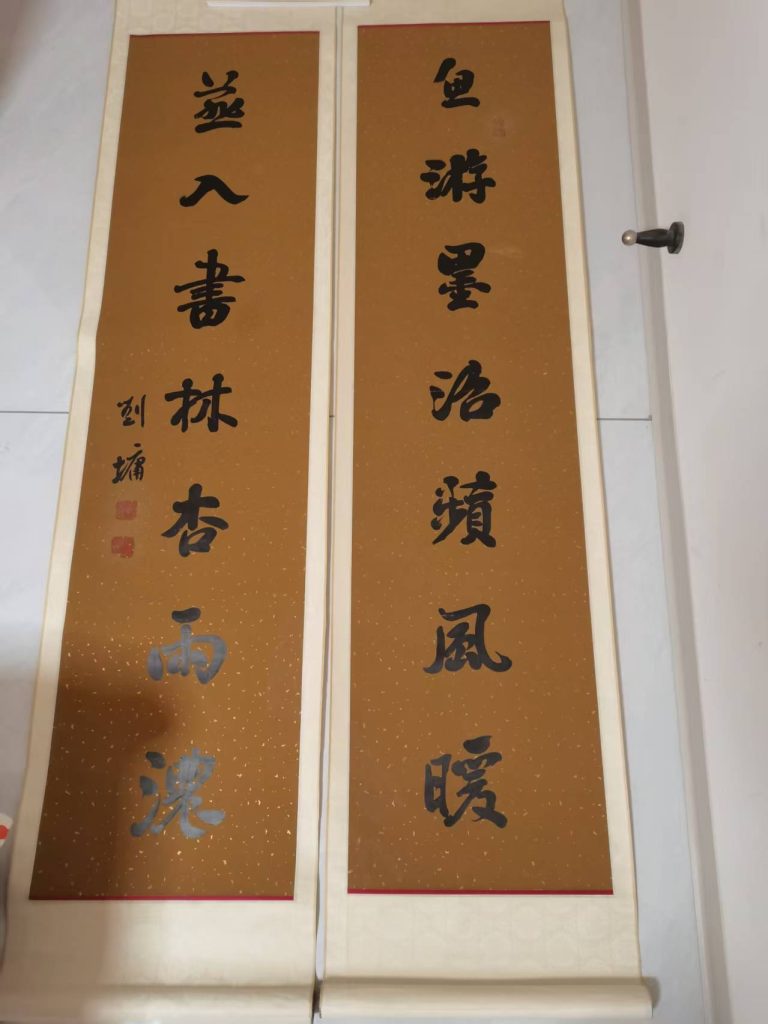 魚游墨沼蘋風暖
燕入書林杏雨濃
劉墉